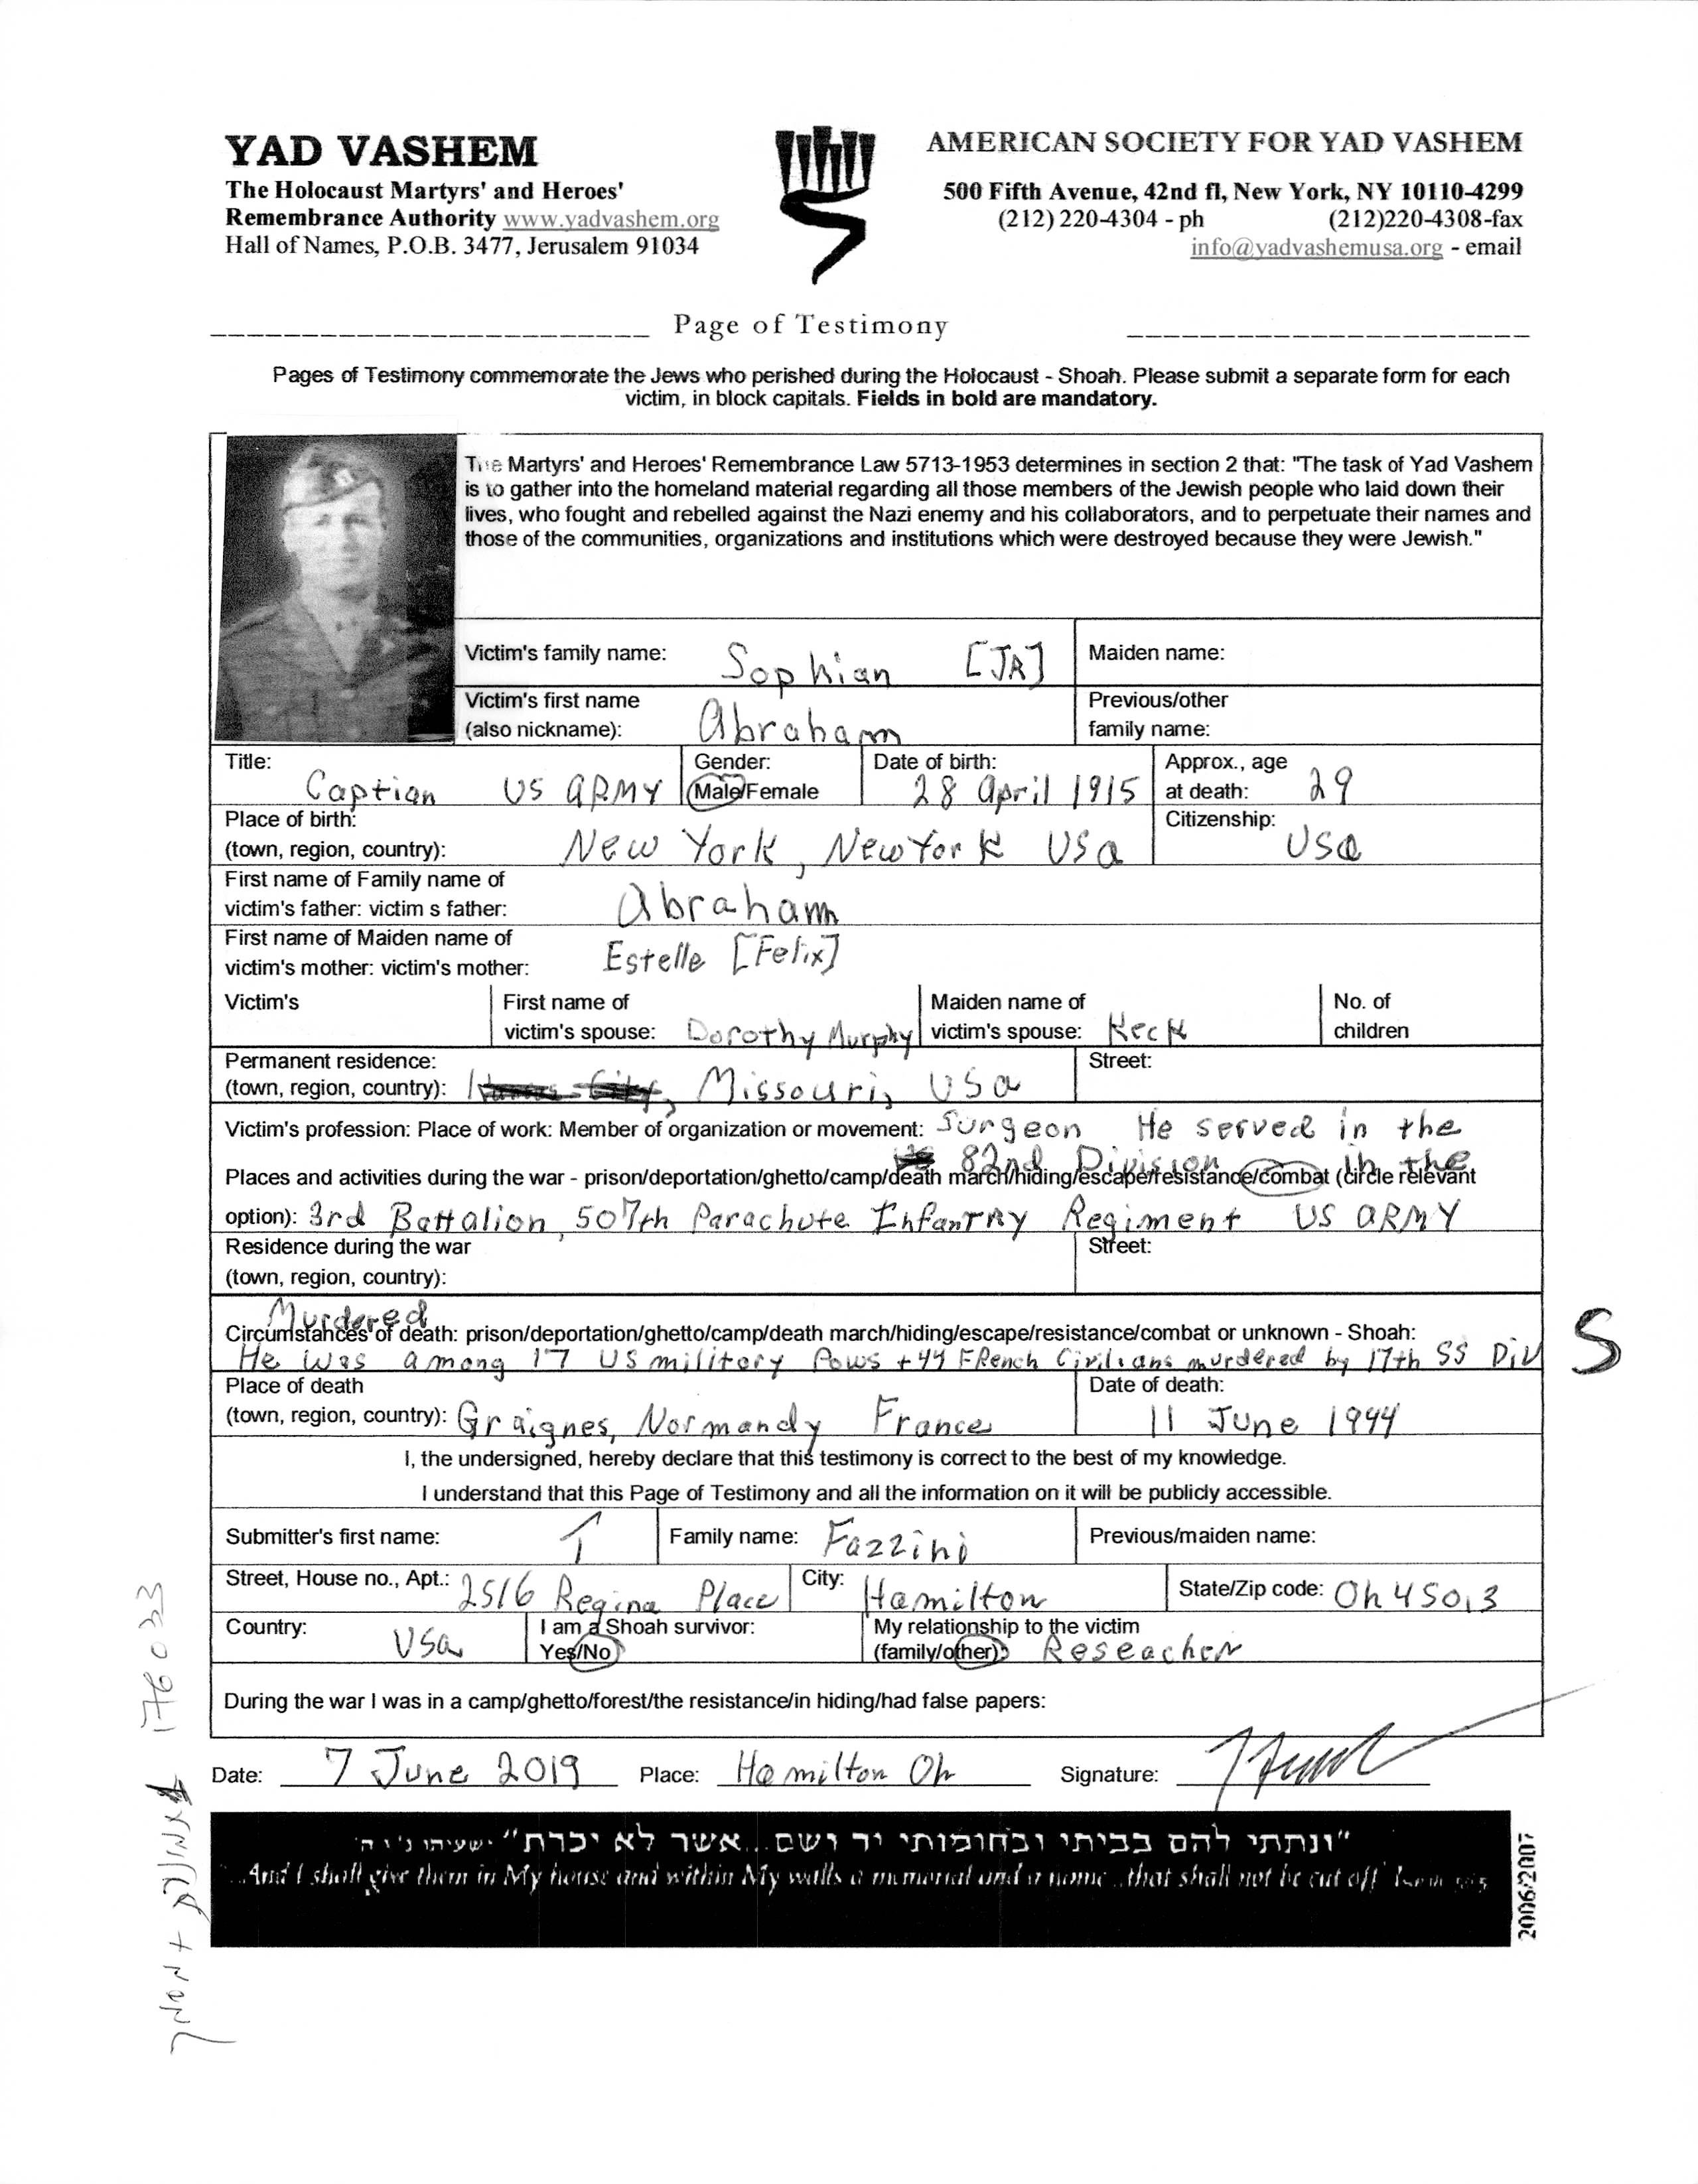 YAD VASHEM
The Holocaust Martyrs' and Heroes'
Remembrance Authority www.yadvashem.org
Hall of Names, P.O.B. 3477, Jerusalem 91034
AMERICAN SOCIETY FOR YAD VASHEM
500 Fifth Avenue, 42nd fl, New York, NY 10110-4299
(212) 220-4304 - ph (212)220-4308-fax
info@yadvashemusa.org - email
Page of Testimony
Pages of Testimony commemorate the Jews who perished during the Holocaust - Shoah. Please submit a separate form for each
victim, in block capitals. Fields in bold are mandatory.
The Martyrs' and Heroes' Remembrance Law 5713-1953 determines in section 2 that: "The task of Yad Vashem
is to gather into the homeland material regarding all those members of the Jewish people who laid down their
lives, who fought and rebelled against the Nazi enemy and his collaborators, and to perpetuate their names and
those of the communities, organizations and institutions which were destroyed because they were Jewish."
Victim's family name: Sophian [JR] Maiden name:
Victim's first name
(also nickname): Abraham
Previous/other
family name:
Title: Caption US ARMY
Gender:
Male/Female
Date of birth:
28 April 1915
Approx., age
at death: 29
Place of birth:
(town, region, country): New York, New York USA
Citizenship:
USA
First name of Family name of
victim's father: victim s father: Abraham
First name of Maiden name of
victim's mother: victim's mother: Estelle [Felix]
Victim's
First name of
victim's spouse: Dorothy Murphy
Maiden name of
victim's spouse: Keck
No. of
children
Permanent residence:
(town, region, country): Missouri, USA
Street:
Victim's profession: Place of work: Member of organization or movement: Surgeon He served in the
82nd Division in the
Places and activities during the war - prison/deportation/ghetto/camp/death march/hiding/escape/resistance/combat (circle relevant
option): 3rd Battalion, 507th Parachute InfanTRY Regiment US ARMY
Residence during the war
(town, region, country):
Street:
Murdered
Circumstances of death: prison/deportation/ghetto/camp/death march/hiding/escape/resistance/combat or unknown - Shoah:
He was among 17 US military Pows + 44 FRench Civilians murdered by 17th SS Div
S
Place of death
(town, region, country): Graignes, Normandy France
Date of death:
11 June 1944
I, the undersigned, hereby declare that this testimony is correct to the best of my knowledge.
I understand that this Page of Testimony and all the information on it will be publicly accessible.
Submitter's first name: T Family name: Fazzini Previous/maiden name:
Street, House no., Apt.: 2516 Regina Place City: Hamilton State/Zip code: Oh 45013
Country: USA
I am a Shoah survivor:
Yes/No
My relationship to the victim
(family/other): Reseacher
During the war I was in a camp/ghetto/forest/the resistance/in hiding/had false papers:
Date: 7 June 2019 Place: Hamilton Oh Signature:
"ונתתי להם בביתי ובחומותי יד ושם...אשר לא יכרת" ישעיהו נ"ו ה'
"...And I shall give them in My house and within My walls a memorial and a name...that shall not be cut off"
2006/2007
176033